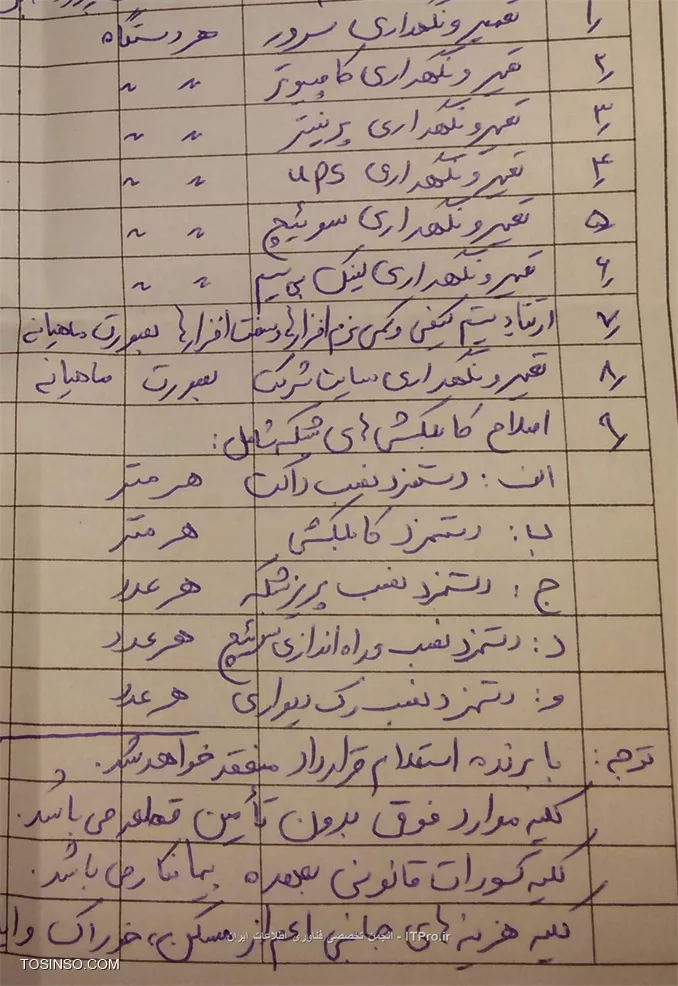 ۱ تعمیر و نگهداری سرور هر دستگاه
۲ تعمیر و نگهداری کامپیوتر " "
۳ تعمیر و نگهداری پرینتر " "
۴ تعمیر و نگهداری ups " "
۵ تعمیر و نگهداری سوئیچ " "
۶ تعمیر و نگهداری لینک بی سیم " "
۷ ارتقاء سیستم کیفی و کمی نرم افزارها و سخت افزارها بصورت ماهیانه
۸ تعمیر و نگهداری سایت شرکت بصورت ماهیانه
۹ اصلاح کابلکشی های شبکه شامل:
الف: دستمزد نصب داکت هر متر
ب: دستمزد کابلکشی هر متر
ج: دستمزد نصب پریز شبکه هر عدد
د: دستمزد نصب و راه اندازی سوئیچ هر عدد
و: دستمزد نصب رک دیواری هر عدد
توجه: با برنده استعلام قرارداد منعقد خواهد شد.
کلیه موارد فوق بدون تأمین قطعه می باشد.
کلیه کسورات قانونی بعهده پیمانکار می باشد.
کلیه هزینه های جانبی اعم از مسکن، خوراک و
ITPro.ir - انجمن تخصصی فناوری اطلاعات ایران
TOSINSO.COM